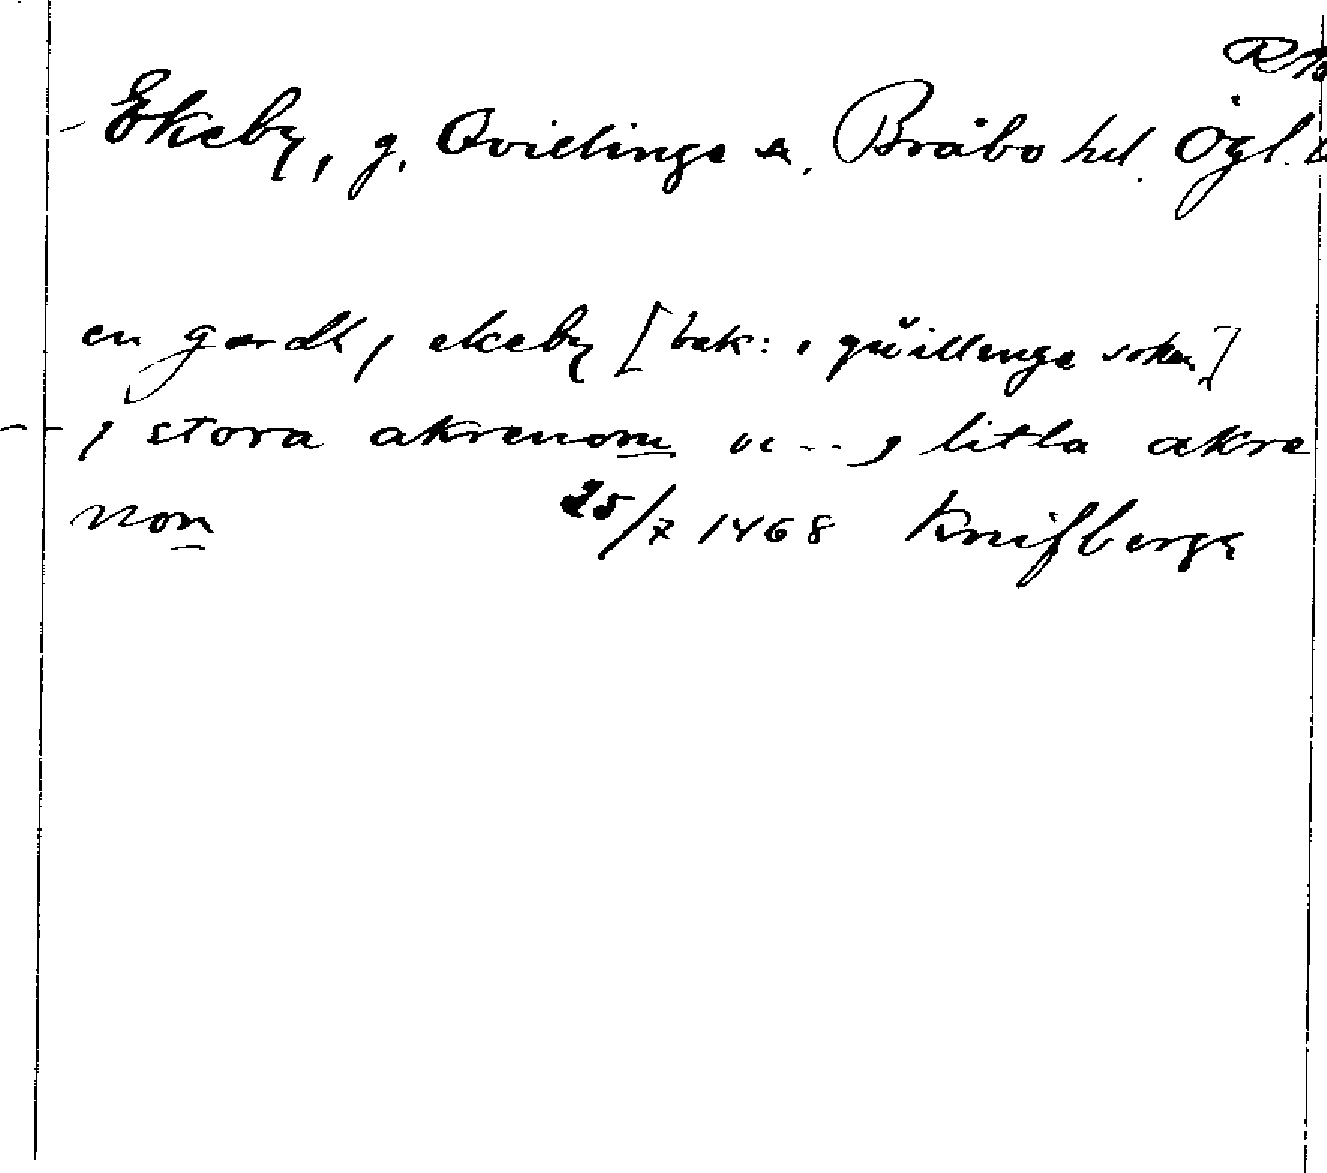 Ekeby, g. Qvillinge sn. Bråbo hd. Ögl.
en gardh j ekeby [bak: i qwillenge sokn]
j stora akrenom oc -- j litla akre
nom 25/7 1468 Knifberga